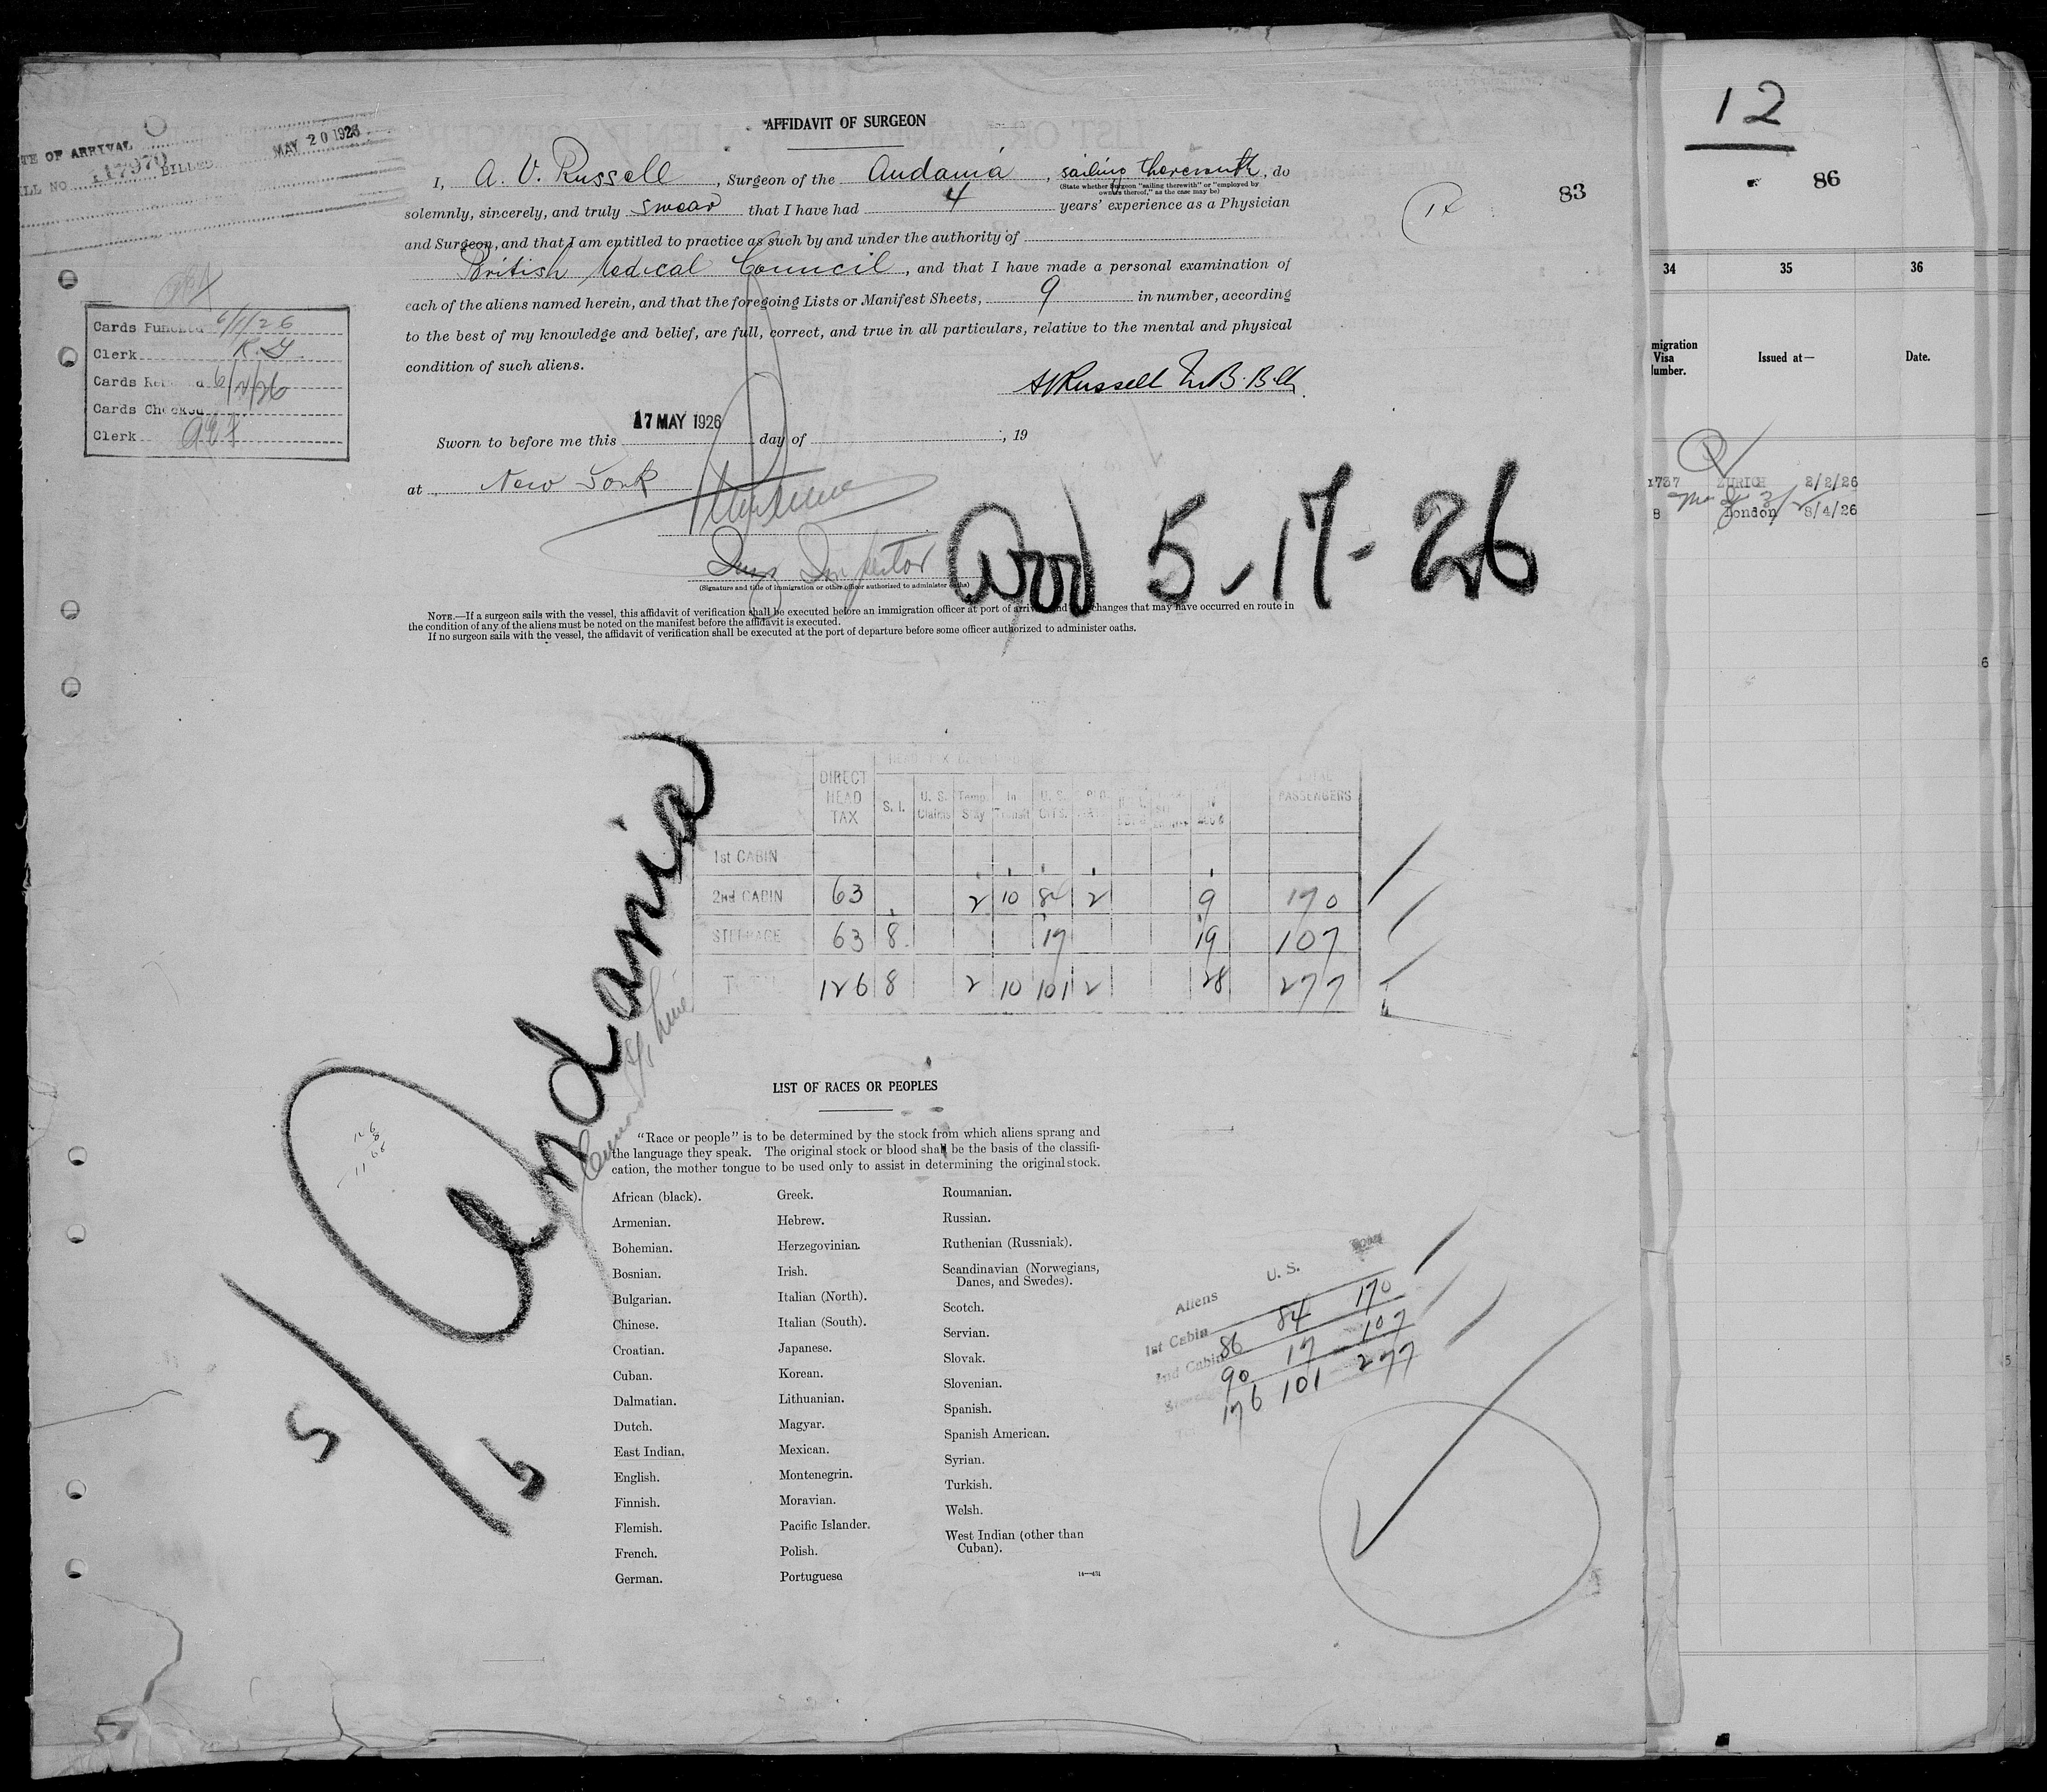 AFFIDAVIT OF SURGEON
TE OF ARRIVAL
MAY 20 1926
LL NO 117970 BILLED
I, A. V. Russell, Surgeon of the Andania, sailing therewith, do
(State whether Surgeon "sailing therewith" or "employed by
owners thereof," as the case may be)
solemnly, sincerely, and truly swear that I have had 4 years' experience as a Physician
and Surgeon, and that I am entitled to practice as such by and under the authority of
British Medical Council, and that I have made a personal examination of
each of the aliens named herein, and that the foregoing Lists or Manifest Sheets, 9 in number, according
to the best of my knowledge and belief, are full, correct, and true in all particulars, relative to the mental and physical
condition of such aliens.
AVRussell M.B. B.Ch.
17 MAY 1926
Sworn to before me this day of , 19
at New York
Inspector
(Signature and title of immigration or other officer authorized to administer oaths)
5-17-26
NOTE.—If a surgeon sails with the vessel, this affidavit of verification shall be executed before an immigration officer at port of arrival and changes that may have occurred en route in
the condition of any of the aliens must be noted on the manifest before the affidavit is executed.
If no surgeon sails with the vessel, the affidavit of verification shall be executed at the port of departure before some officer authorized to administer oaths.
83
Cards Punched 6/1/26
Clerk R.G.
Cards 6/2/26
Cards Checked
Clerk
DIRECT HEAD TAX S. I. U. S. Claims Temp. Stay In Transit U. S. Cits. PASSENGERS
1st CABIN
2nd CABIN 63 2 10 84 2 9 170
STEERAGE 63 8 17 19 107
126 8 2 10 101 2 28 277
Andania
Cunard S/S Line
5/
126
8
1168
LIST OF RACES OR PEOPLES
"Race or people" is to be determined by the stock from which aliens sprang and
the language they speak. The original stock or blood shall be the basis of the classifi-
cation, the mother tongue to be used only to assist in determining the original stock.
African (black).
Armenian.
Bohemian.
Bosnian.
Bulgarian.
Chinese.
Croatian.
Cuban.
Dalmatian.
Dutch.
East Indian.
English.
Finnish.
Flemish.
French.
German.
Greek.
Hebrew.
Herzegovinian.
Irish.
Italian (North).
Italian (South).
Japanese.
Korean.
Lithuanian.
Magyar.
Mexican.
Montenegrin.
Moravian.
Pacific Islander.
Polish.
Portuguese
Roumanian.
Russian.
Ruthenian (Russniak).
Scandinavian (Norwegians,
Danes, and Swedes).
Scotch.
Servian.
Slovak.
Slovenian.
Spanish.
Spanish American.
Syrian.
Turkish.
Welsh.
West Indian (other than
Cuban).
Aliens U. S.
1st Cabin
2nd Cabin 86 84 170
90 17 107
176 101 277
12
86
34 35 36
migration
Visa
umber.
Issued at—
Date.
1737 ZURICH 2/2/26
8 London 8/4/26
6
5